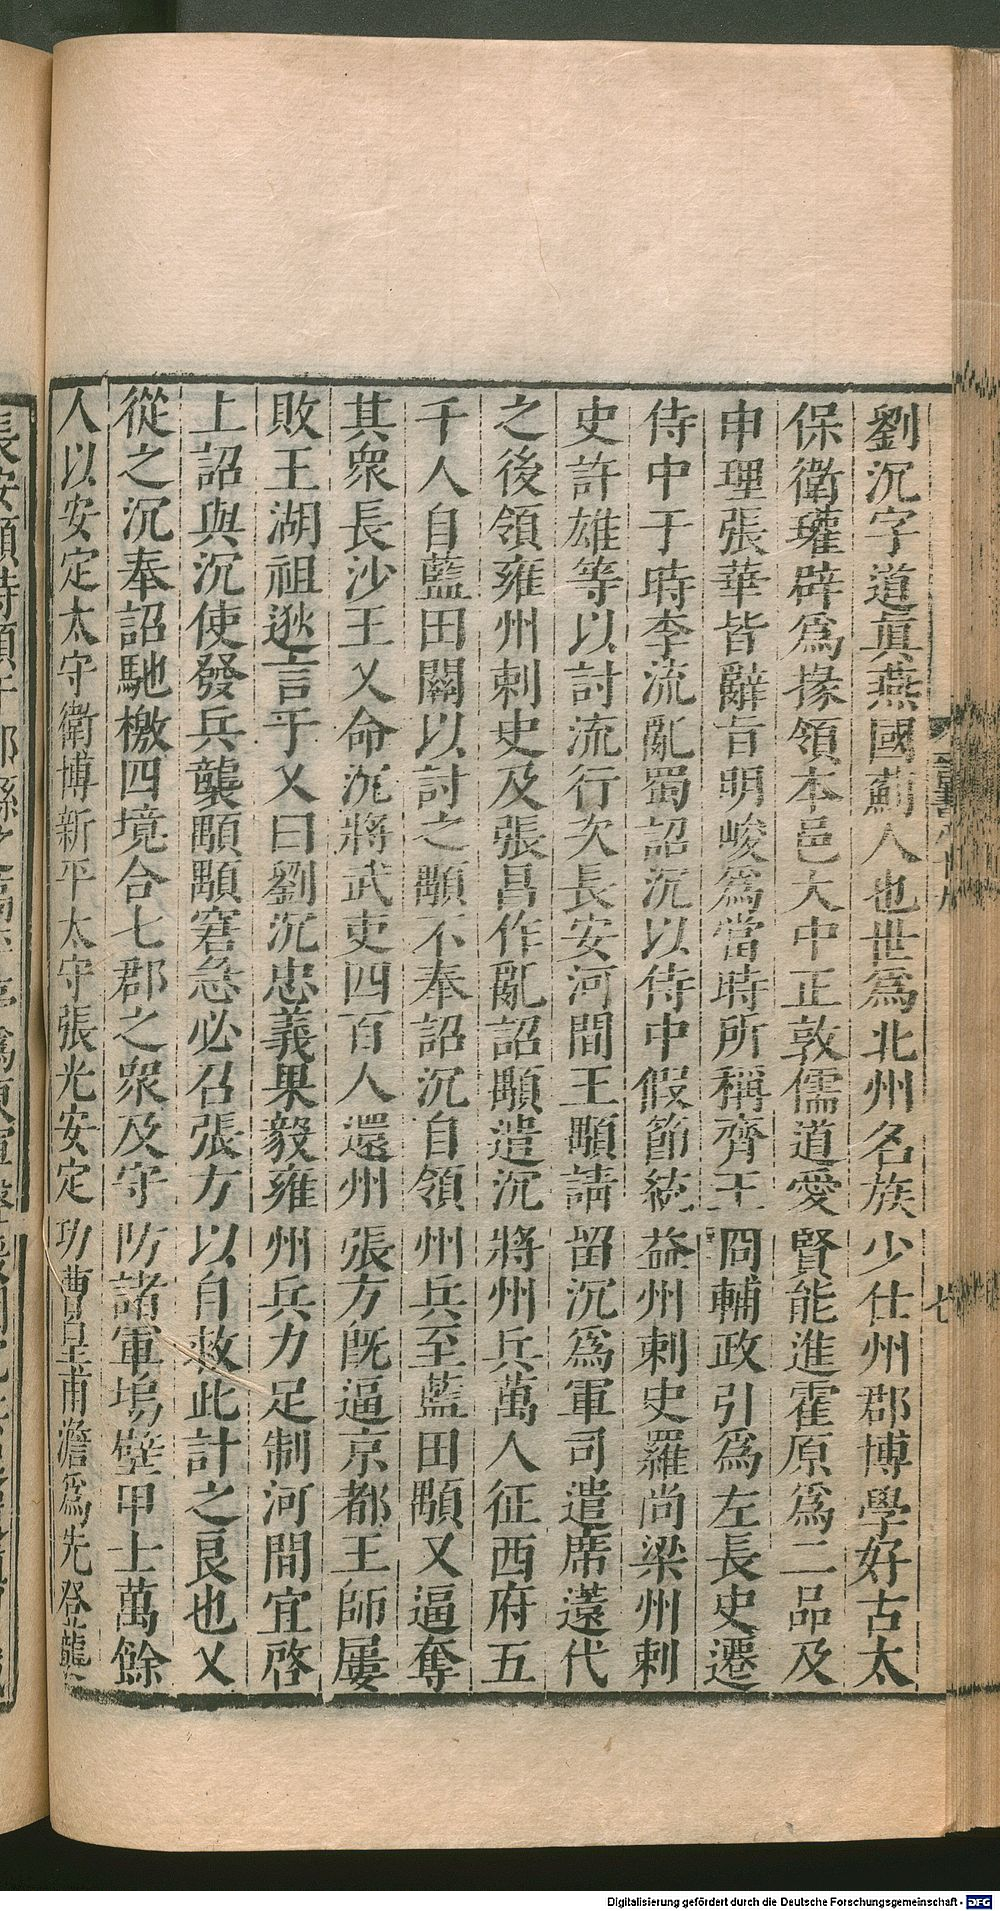 劉沉字道眞燕國薊人也世爲北州名族少仕州郡博學好古太
保衛瓘辟爲掾領本邑大中正敦儒道愛賢能進霍原爲二品及
申理張華皆辭旨明峻爲當時所稱齊王冏輔政引爲左長史遷
侍中于時李流亂蜀詔沉以侍中假節統益州刺史羅尚梁州刺
史許雄等以討流行次長安河間王顒請留沉爲軍司遣席薳代
之後領雍州刺史及張昌作亂詔顒遣沉將州兵萬人征西府五
千人自藍田關以討之顒不奉詔沉自領州兵至藍田顒又逼奪
其衆長沙王乂命沉將武吏四百人還州張方既逼京都王師屢
敗王湖祖逖言于乂曰劉沉忠義果毅雍州兵力足制河間宜啓
上詔與沉使發兵襲顒顒窘急必召張方以自救此計之良也乂
從之沉奉詔馳檄四境合七郡之衆及守防諸軍塢壁甲士萬餘
人以安定太守衛博新平太守張光安定功曹皇甫澹爲先登襲
七
Digitalisierung gefördert durch die Deutsche Forschungsgemeinschaft - DFG